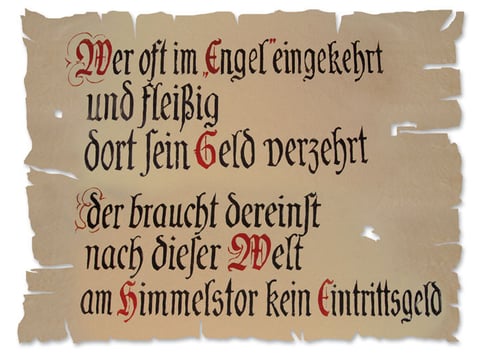 Wer oft im „Engel" eingekehrt
und fleißig
dort sein Geld verzehrt
der braucht dereinst
nach dieser Welt
am Himmelstor kein Eintrittsgeld